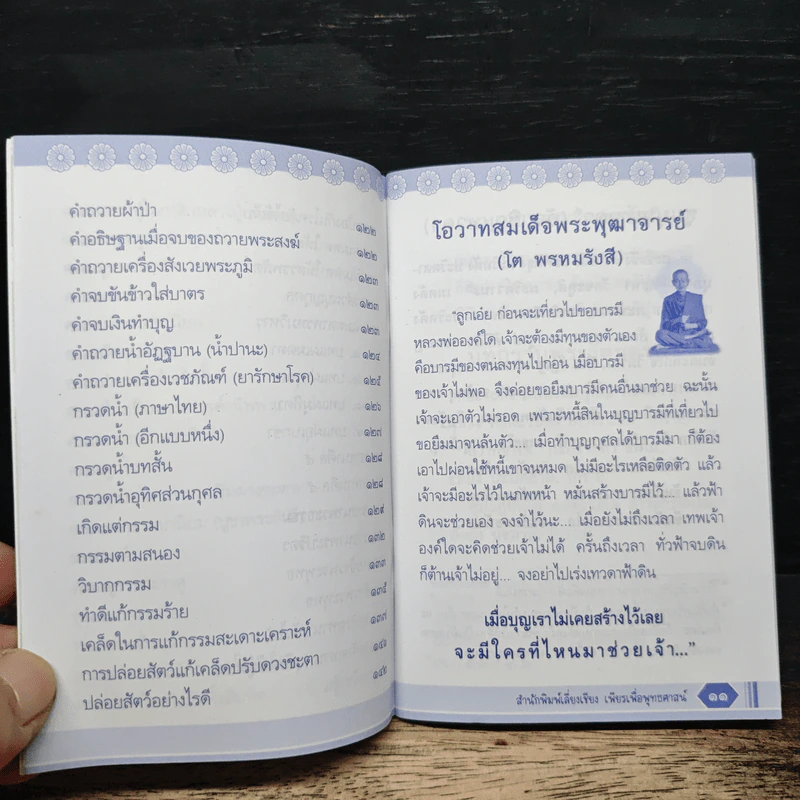 คำถวายผ้าป่า ๑๒๒
คำอธิษฐานเมื่อจบของถวายพระสงฆ์ ๑๒๒
คำถวายเครื่องสังเวยพระภูมิ ๑๒๓
คำจบขันข้าวใส่บาตร ๑๒๓
คำจบเงินทำบุญ ๑๒๓
คำถวายน้ำอัฏฐบาน (น้ำปานะ) ๑๒๔
คำถวายเครื่องเวชภัณฑ์ (ยารักษาโรค) ๑๒๕
กรวดน้ำ (ภาษาไทย) ๑๒๖
กรวดน้ำ (อีกแบบหนึ่ง) ๑๒๗
กรวดน้ำบทสั้น ๑๒๘
กรวดน้ำอุทิศส่วนกุศล ๑๒๘
เกิดแต่กรรม ๑๒๙
กรรมตามสนอง ๑๓๒
วิบากกรรม ๑๓๓
ทำดีแก้กรรมร้าย ๑๓๕
เคล็ดในการแก้กรรมสะเดาะเคราะห์ ๑๓๗
การปล่อยสัตว์แก้เคล็ดปรับดวงชะตา ๑๔๑
ปล่อยสัตว์อย่างไรดี ๑๔๒
โอวาทสมเด็จพระพุฒาจารย์
(โต พรหมรังสี)
"ลูกเอ๋ย ก่อนจะเที่ยวไปขอบารมี
หลวงพ่อองค์ใด เจ้าจะต้องมีทุนของตัวเอง
คือบารมีของตนลงทุนไปก่อน เมื่อบารมี
ของเจ้าไม่พอ จึงค่อยขอยืมบารมีคนอื่นมาช่วย ฉะนั้น
เจ้าจะเอาตัวไม่รอด เพราะหนี้สินในบุญบารมีที่เที่ยวไป
ขอยืมมาจนล้นตัว... เมื่อทำบุญกุศลได้บารมีมา ก็ต้อง
เอาไปผ่อนใช้หนี้เขาจนหมด ไม่มีอะไรเหลือติดตัว แล้ว
เจ้าจะมีอะไรไว้ในภพหน้า หมั่นสร้างบารมีไว้... แล้วฟ้า
ดินจะช่วยเอง จงจำไว้นะ... เมื่อยังไม่ถึงเวลา เทพเจ้า
องค์ใดจะคิดช่วยเจ้าไม่ได้ ครั้นถึงเวลา ทั่วฟ้าจบดิน
ก็ต้านเจ้าไม่อยู่... จงอย่าไปเร่งเทวดาฟ้าดิน
เมื่อบุญเราไม่เคยสร้างไว้เลย
จะมีใครที่ไหนมาช่วยเจ้า..."
สำนักพิมพ์เลี่ยงเชียง เพียรเพื่อพุทธศาสน์ ๑๑